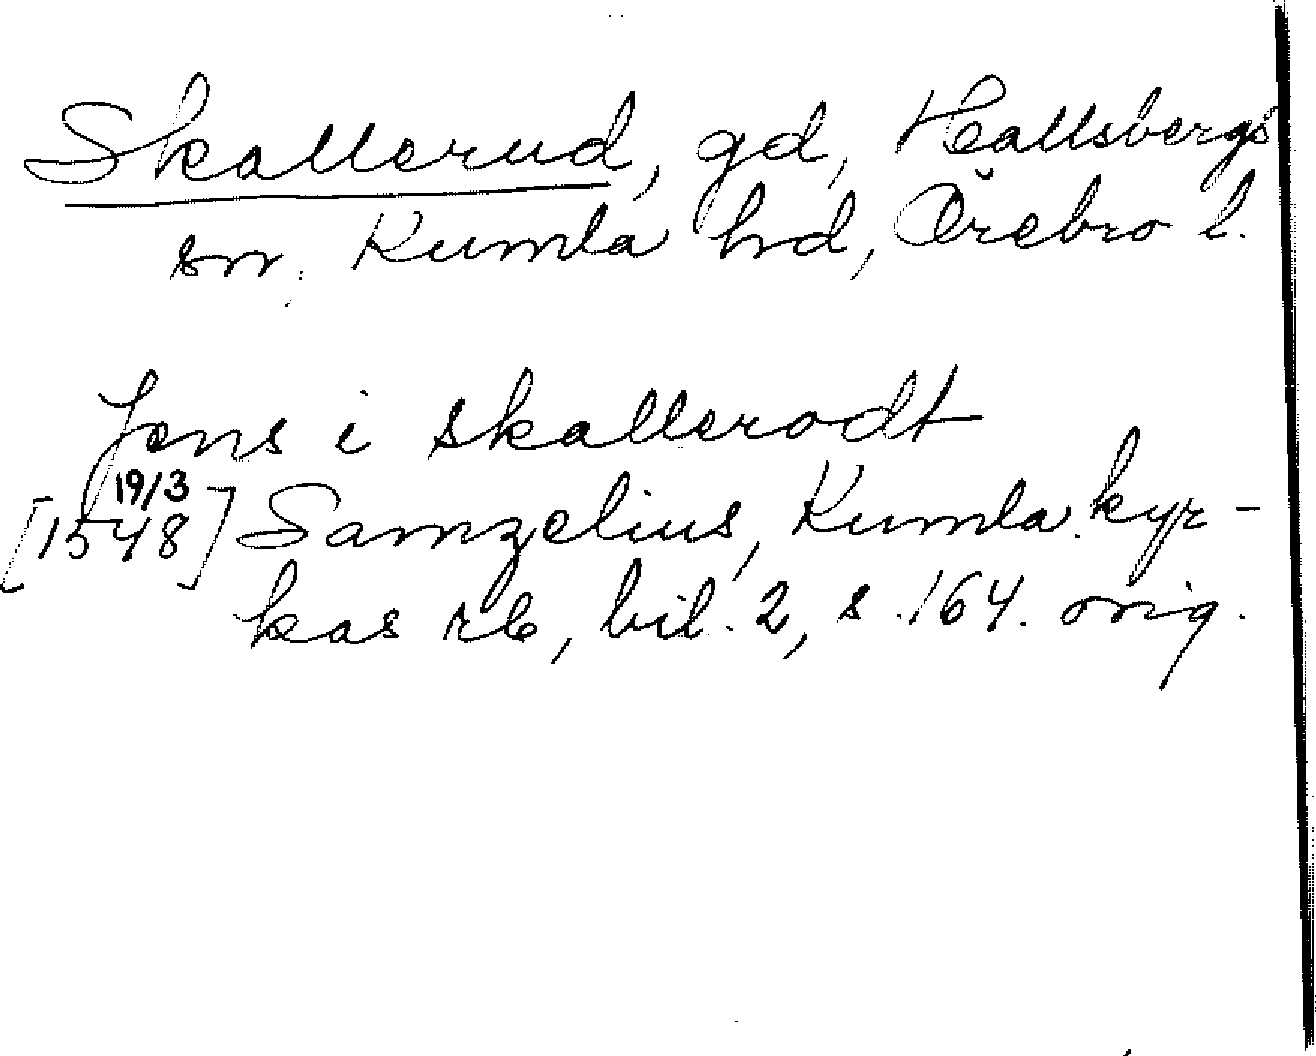 Skallerud, gd, Hallsbergs
sn. Kumla hd, Örebro l.
Jens i skallerodt
19/3
[1548] Samzelius, Kumla kyr-
kas rb, bil. 2, s. 164. orig.